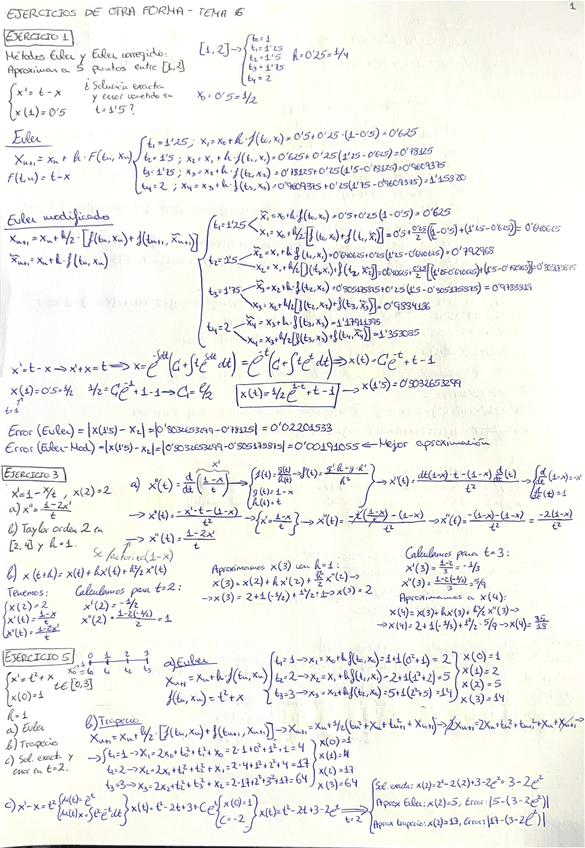 EJERCICIOS DE OTRA FORMA - TEMA 6
1
EJERCICIO 1
Métodos Euler y Euler corregido:
Aproximar a 5 puntos entre [1,2]
{x' = t - x
x(1) = 0'5
¿Solución exacta
y error cometido en
t = 1'5?
[1,2] → {t₀ = 1
t₁ = 1'25
t₂ = 1'5
t₃ = 1'75
t₄ = 2
h = 0'25 = 1/4
x₀ = 0'5 = 1/2
Euler
xₙ₊₁ = xₙ + h · F(tₙ, xₙ)
F(t,x) = t - x
t₁ = 1'25; x₁ = x₀ + h · f(t₀, x₀) = 0'5 + 0'25 · (1 - 0'5) = 0'625
t₂ = 1'5; x₂ = x₁ + h · f(t₁, x₁) = 0'625 + 0'25 (1'25 - 0'625) = 0'78125
t₃ = 1'75; x₃ = x₂ + h · f(t₂, x₂) = 0'78125 + 0'25 (1'5 - 0'78125) = 0'9609375
t₄ = 2; x₄ = x₃ + h · f(t₃, x₃) = 0'9609375 + 0'25 (1'75 - 0'9609375) = 1'15820
Euler modificado
xₙ₊₁ = xₙ + h/2 · [f(tₙ, xₙ) + f(tₙ₊₁, x̃ₙ₊₁)]
x̃ₙ₊₁ = xₙ + h · f(tₙ, xₙ)
t₁ = 1'25
x̃₁ = x₀ + h · f(t₀, x₀) = 0'5 + 0'25 (1 - 0'5) = 0'625
x₁ = x₀ + h/2 [f(t₀, x₀) + f(t₁, x̃₁)] = 0'5 + 0'25/2 [(1 - 0'5) + (1'25 - 0'625)] = 0'640625
t₂ = 1'5
x̃₂ = x₁ + h · f(t₁, x₁) = 0'640625 + 0'25 (1'25 - 0'640625) = 0'792968
x₂ = x₁ + h/2 [f(t₁, x₁) + f(t₂, x̃₂)]
t₃ = 1'75
x̃₃ = x₂ + h · f(t₂, x₂)
x₃ = x₂ + h/2 [f(t₂, x₂) + f(t₃, x̃₃)] = 0'9834186
t₄ = 2
x̃₄ = x₃ + h · f(t₃, x₃)
x₄ = x₃ + h/2 [f(t₃, x₃) + f(t₄, x̃₄)] = 1'353085
x' = t - x → x' + x = t → x = e^(-∫dt) (C₁ + ∫t e^(∫dt) dt) = e^(-t) (C₁ + ∫t e^t dt) → x(t) = C₁e^(-t) + t - 1
x(1) = 0'5 = 1/2
t = 1
1/2 = C₁e^(-1) + 1 - 1 → C₁ = e/2
x(t) = 1/2 e^(1-t) + t - 1
→ x(1'5) = 0'8032653299
Error (Euler) = |x(1'5) - x₂| = |0'803265299 - 0'78125| = 0'02201533
Error (Euler-Mod) = |x(1'5) - x₂| = |0'803265299 - 0'805175875| = 0'00191055 ← Mejor aproximación
EJERCICIO 3
x' = 1 - x/t, x(2) = 2
a) x'' = (1 - 2x')/t
b) Taylor orden 2 en
[2,4] y h = 1.
a) x''(t) = d/dt ((1-x)/t)
x'
f(t) = g(t)/h(t) → f'(t) = (g'·h - g·h')/h²
g(t) = 1 - x
h(t) = t
→ x''(t) = (-x'·t - (1-x))/t²
→ {x' = (1-x)/t
→ x''(t) = (-(1-x) - (1-x))/t² = -2(1-x)/t²
→ x''(t) = (1-2x')/t
Se factoriza (1-x)
b) x(t+h) = x(t) + hx'(t) + h²/2 x''(t)
Tenemos:
x(2) = 2
x'(t) = (1-x)/t
x''(t) = (1-2x')/t
Calculamos para t = 2:
x'(2) = -1/2
x''(2) = (1-2(-1/2))/2 = 1
Aproximamos x(3) con h = 1:
x(3) = x(2) + hx'(2) + h²/2 x''(2) →
→ x(3) = 2 + 1(-1/2) + 1²/2 · 1 → x(3) = 2
Calculamos para t = 3:
x'(3) = (1-2)/3 = -1/3
x''(3) = (1-2(-1/3))/3 = 5/9
Aproximamos a x(4):
x(4) = x(3) + hx'(3) + h²/2 x''(3) →
→ x(4) = 2 + 1(-1/3) + 1²/2 · 5/9 → x(4) = 35/18
EJERCICIO 5
0 1 2 3
x₀=t₀ t₁ t₂ t₃
{x' = t² + x
x(0) = 1
t∈[0,3]
h = 1
a) Euler
b) Trapecio
c) Sol. exacta y
error en t = 2.
a) Euler
xₙ₊₁ = xₙ + h f(tₙ, xₙ)
f(tₙ, xₙ) = t² + x
t₁ = 1 → x₁ = x₀ + h f(t₀, x₀) = 1 + 1(0² + 1) = 2
t₂ = 2 → x₂ = x₁ + h f(t₁, x₁) = 2 + 1(1² + 2) = 5
t₃ = 3 → x₃ = x₂ + h f(t₂, x₂) = 5 + 1(2² + 5) = 14
x(0) = 1
x(1) = 2
x(2) = 5
x(3) = 14
b) Trapecio
xₙ₊₁ = xₙ + h/2 · [f(tₙ, xₙ) + f(tₙ₊₁, xₙ₊₁)] → xₙ₊₁ = xₙ + 1/2 (tₙ² + xₙ + tₙ₊₁² + xₙ₊₁) → 2xₙ₊₁ = 2xₙ + tₙ² + tₙ₊₁² + xₙ + xₙ₊₁ →
→ t₁ = 1 → x₁ = 2x₀ + t₀² + t₁² + x₀ = 2·1 + 0² + 1² + 1 = 4
t₂ = 2 → x₂ = 2x₁ + t₁² + t₂² + x₁ = 2·4 + 1² + 2² + 4 = 17
t₃ = 3 → x₃ = 2x₂ + t₂² + t₃² + x₂ = 2·17 + 2² + 3² + 17 = 64
x(0) = 1
x(1) = 4
x(2) = 17
x(3) = 64
c) x' - x = t²
x(t) = -t² - 2t + 3 + Ce^t
{x(0) = 1
C = -2
x(t) = t² - 2t + 3 - 2e^t
t = 2
Sol. exacta: x(2) = 2² - 2(2) + 3 - 2e² = 3 - 2e²
Aprox Euler: x(2) = 5, Error: |5 - (3 - 2e²)|
Aprox trapecio: x(2) = 17, Error: |17 - (3 - 2e²)|